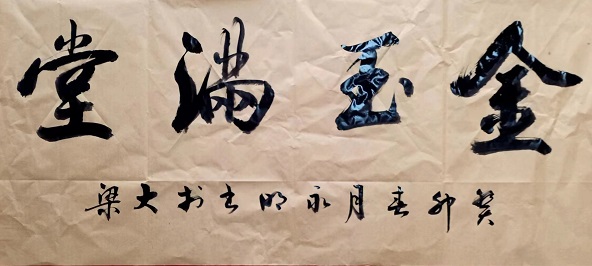 金玉满堂
癸卯春月永明书於大梁